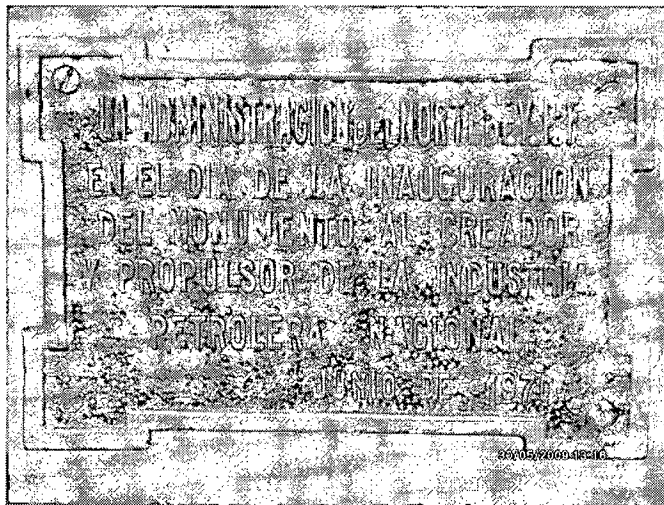 LA ADMINISTRACION DEL NORTE DE Y.P.F.
EN EL DIA DE LA INAUGURACION
DEL MONUMENTO AL CREADOR
Y PROPULSOR DE LA INDUSTRIA
PETROLERA NACIONAL
JUNIO DE
30/05/2009 13:16